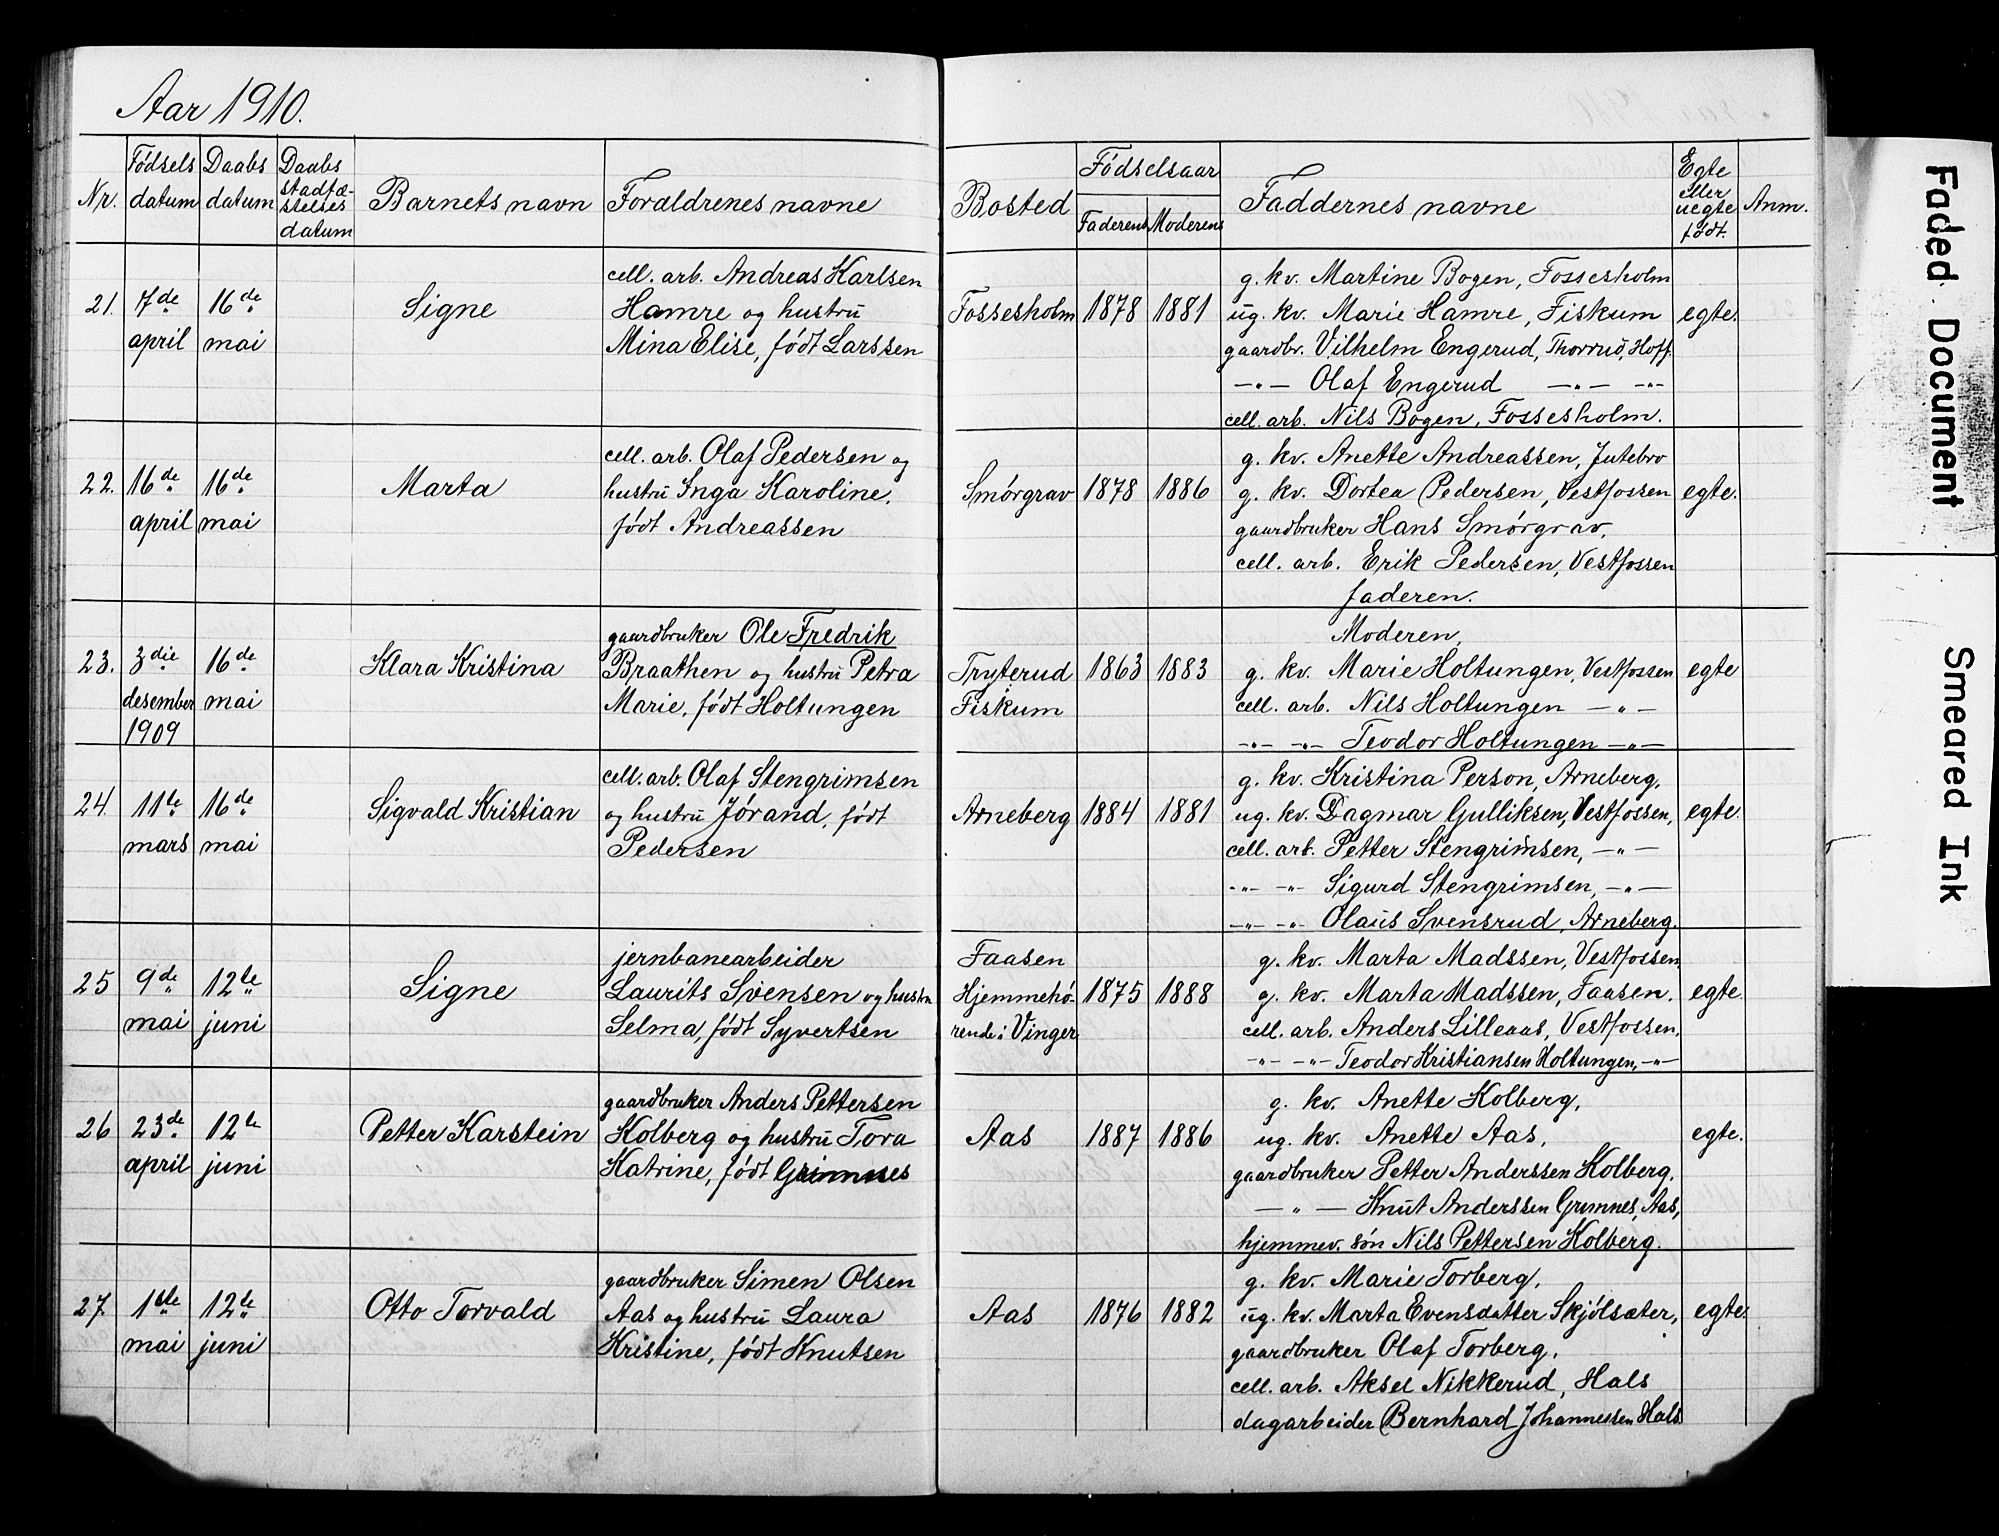 Aar 1910.
Nr.
Fødsels datum
Daabs datum
Daabs stadfæ- stelses datum
Barnets navn
Foraldrenes navne
Bosted
Fødselsaar
Faderens
Moderens
Faddernes navne
Egte eller uegte født.
Anm.
21. 7de april
16de mai
Signe
cell. arb. Andreas Karlsen
Hamre og hustru
Mina Elise, født Larssen
Fossesholm
1878
1881
g. kv. Martine Bogen, Fossesholm
ug. kv. Marie Hamre, Fiskum
gaardbr. Vilhelm Engerud, Thorrud, Hoff.
—„— Olaf Engerud —„— —„—
cell. arb. Nils Bogen, Fossesholm.
egte.
22. 16de april
16de mai
Marta
cell. arb. Olaf Pedersen og
hustru Inga Karoline,
født Andreassen
Smórgrav
1878
1886
g. kv. Anette Andreassen, Jutebro
g. kv. Dortea Pedersen, Vestfossen
gaardbruker Hans Smórgrav,
cell. arb. Erik Pedersen, Vestfossen
faderen.
egte.
23. 3die desember 1909
16de mai
Klara Kristina
gaardbruker Ole Fredrik
Braathen og hustru Petra
Marie, født Holtungen
Tryterud
Fiskum
1863
1883
Moderen,
g. kv. Marie Holtungen, Vestfossen
cell. arb. Nils Holtungen —„—
—„— —„— Teodor Holtungen —„—
egte
24. 11te mars
16de mai
Sigvald Kristian
cell. arb. Olaf Stengrimsen
og hustru Jórand, født
Pedersen
Arneberg
1884
1881
g. kv. Kristina Person, Arneberg,
ug. kv. Dagmar Gulliksen, Vestfossen,
cell. arb. Petter Stengrimsen, —„—
—„— —„— Sigurd Stengrimsen, —„—
—„— —„— Olaus Svensrud, Arneberg.
egte.
25 9de mai
12te juni
Signe
jernbanearbeider
Laurits Svensen og hustru
Selma, født Syvertsen
Faasen
Hjemmehó-
rende i Vinger
1875
1888
g. kv. Marta Madssen, Vestfossen
g. kv. Marta Madssen, Faasen.
cell. arb. Anders Lilleaas, Vestfossen,
—„— —„— Teodor Kristiansen Holtungen, —„—
egte.
26 23de april
12te juni
Petter Karstein
gaardbruker Anders Pettersen
Kolberg og hustru Tora
Katrine, født Grimnes
Aas
1887
1886
g. kv. Anette Kolberg,
ug. kv. Anette Aas,
gaardbruker Petter Anderssen Kolberg.
—„— Knut Anderssen Grimnes, Aas,
hjemmev. són Nils Pettersen Kolberg.
egte.
27. 1ste mai
12te juni
Otto Torvald
gaardbruker Simen Olsen
Aas og hustru Laura
Kristine, født Knutsen
Aas
1876
1882
g. kv. Marie Torberg,
ug. kv. Marta Evensdatter Skjólsæter,
gaardbruker Olaf Torberg,
cell. arb. Aksel Nikkerud, Hals
dagarbeider Bernhard Johannessen Hals
egte.
Faded Document
Smeared Ink